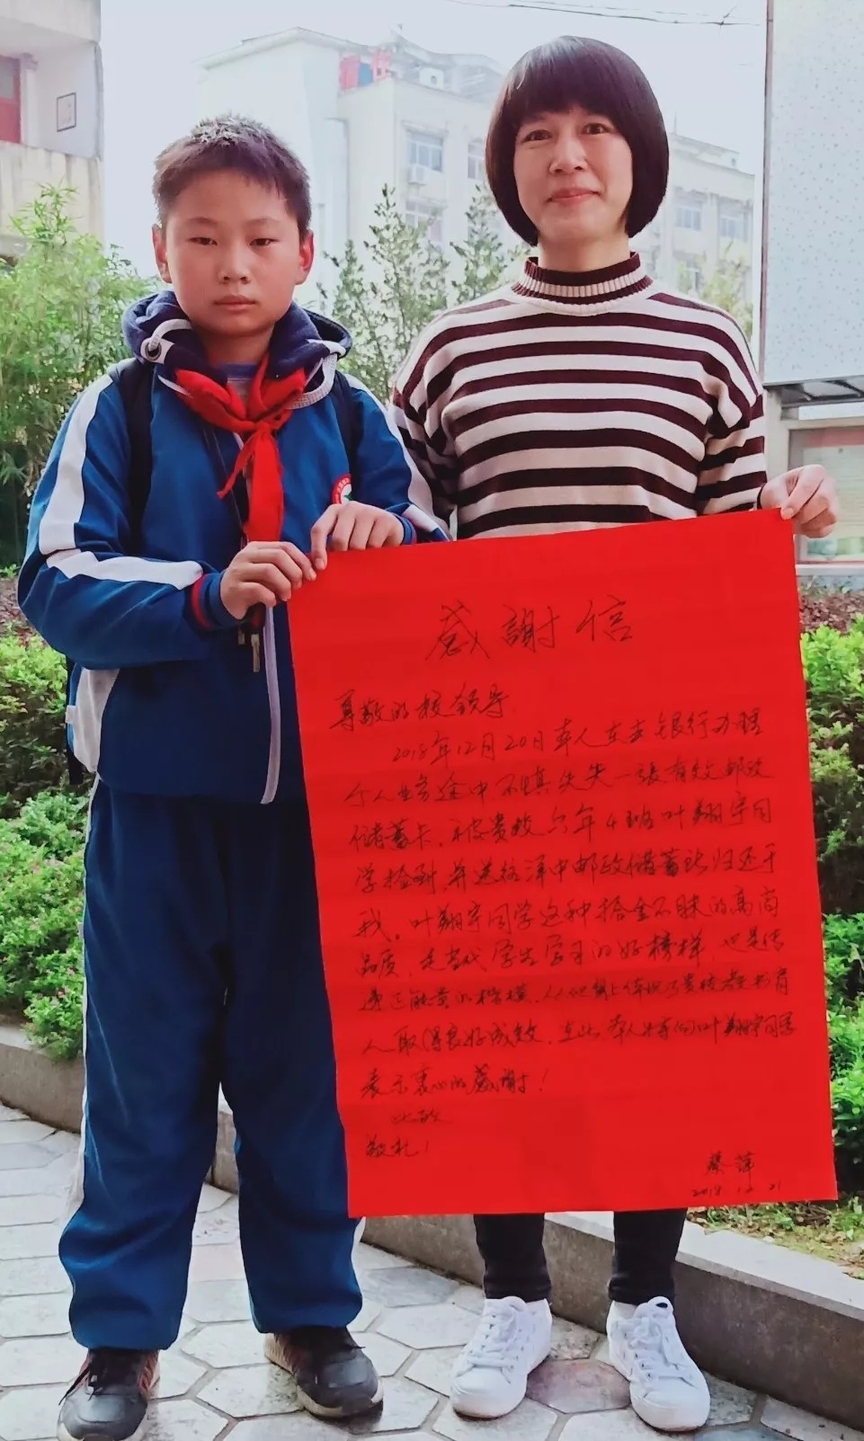 感謝信
尊敬的校领导
2018年12月20日本人在去银行办理
个人业务途中不慎失失一張有效邮政
储蓄卡，被贵校六年4班叶翔宇同
学捡到，并送给洋中邮政储蓄所归还于
我。叶翔宇同学这种拾金不昧的高尚
品质，是当代学生学习的好榜样，也是传
递正能量的楷模，从他身上体现了贵校教书育
人取得良好成效，在此本人特向叶翔宇同学
表示衷心的感謝！
此致
敬礼！
蔡萍
2018.12.21